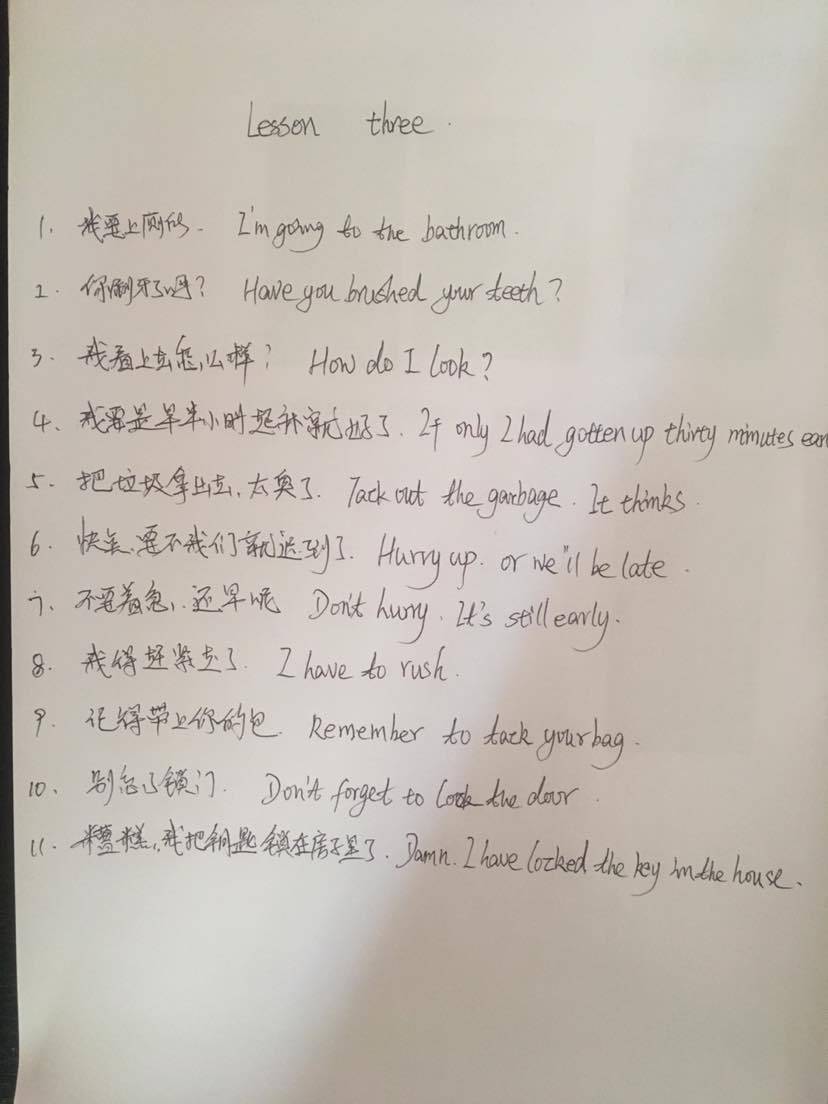 Lesson three.
1. 我要上厕所. I'm going to the bathroom.
2. 你刷牙了吗? Have you brushed your teeth?
3. 我看上去怎么样? How do I look?
4、我要是早半小时起床就好了. If only I had gotten up thirty minutes ear
5. 把垃圾拿出去,太臭了. Tack out the garbage. It thinks.
6. 快点,要不我们就迟到了. Hurry up. or we"ll be late.
7、不要着急,还早呢 Don't hurry. It's still early.
8. 我得赶紧走了. I have to rush.
9. 记得带上你的包. Remember to tack your bag.
10、别忘了锁门. Don't forget to lock the door.
11. 糟糕,我把钥匙锁在房子里了. Damn. I have locked the key in the house.